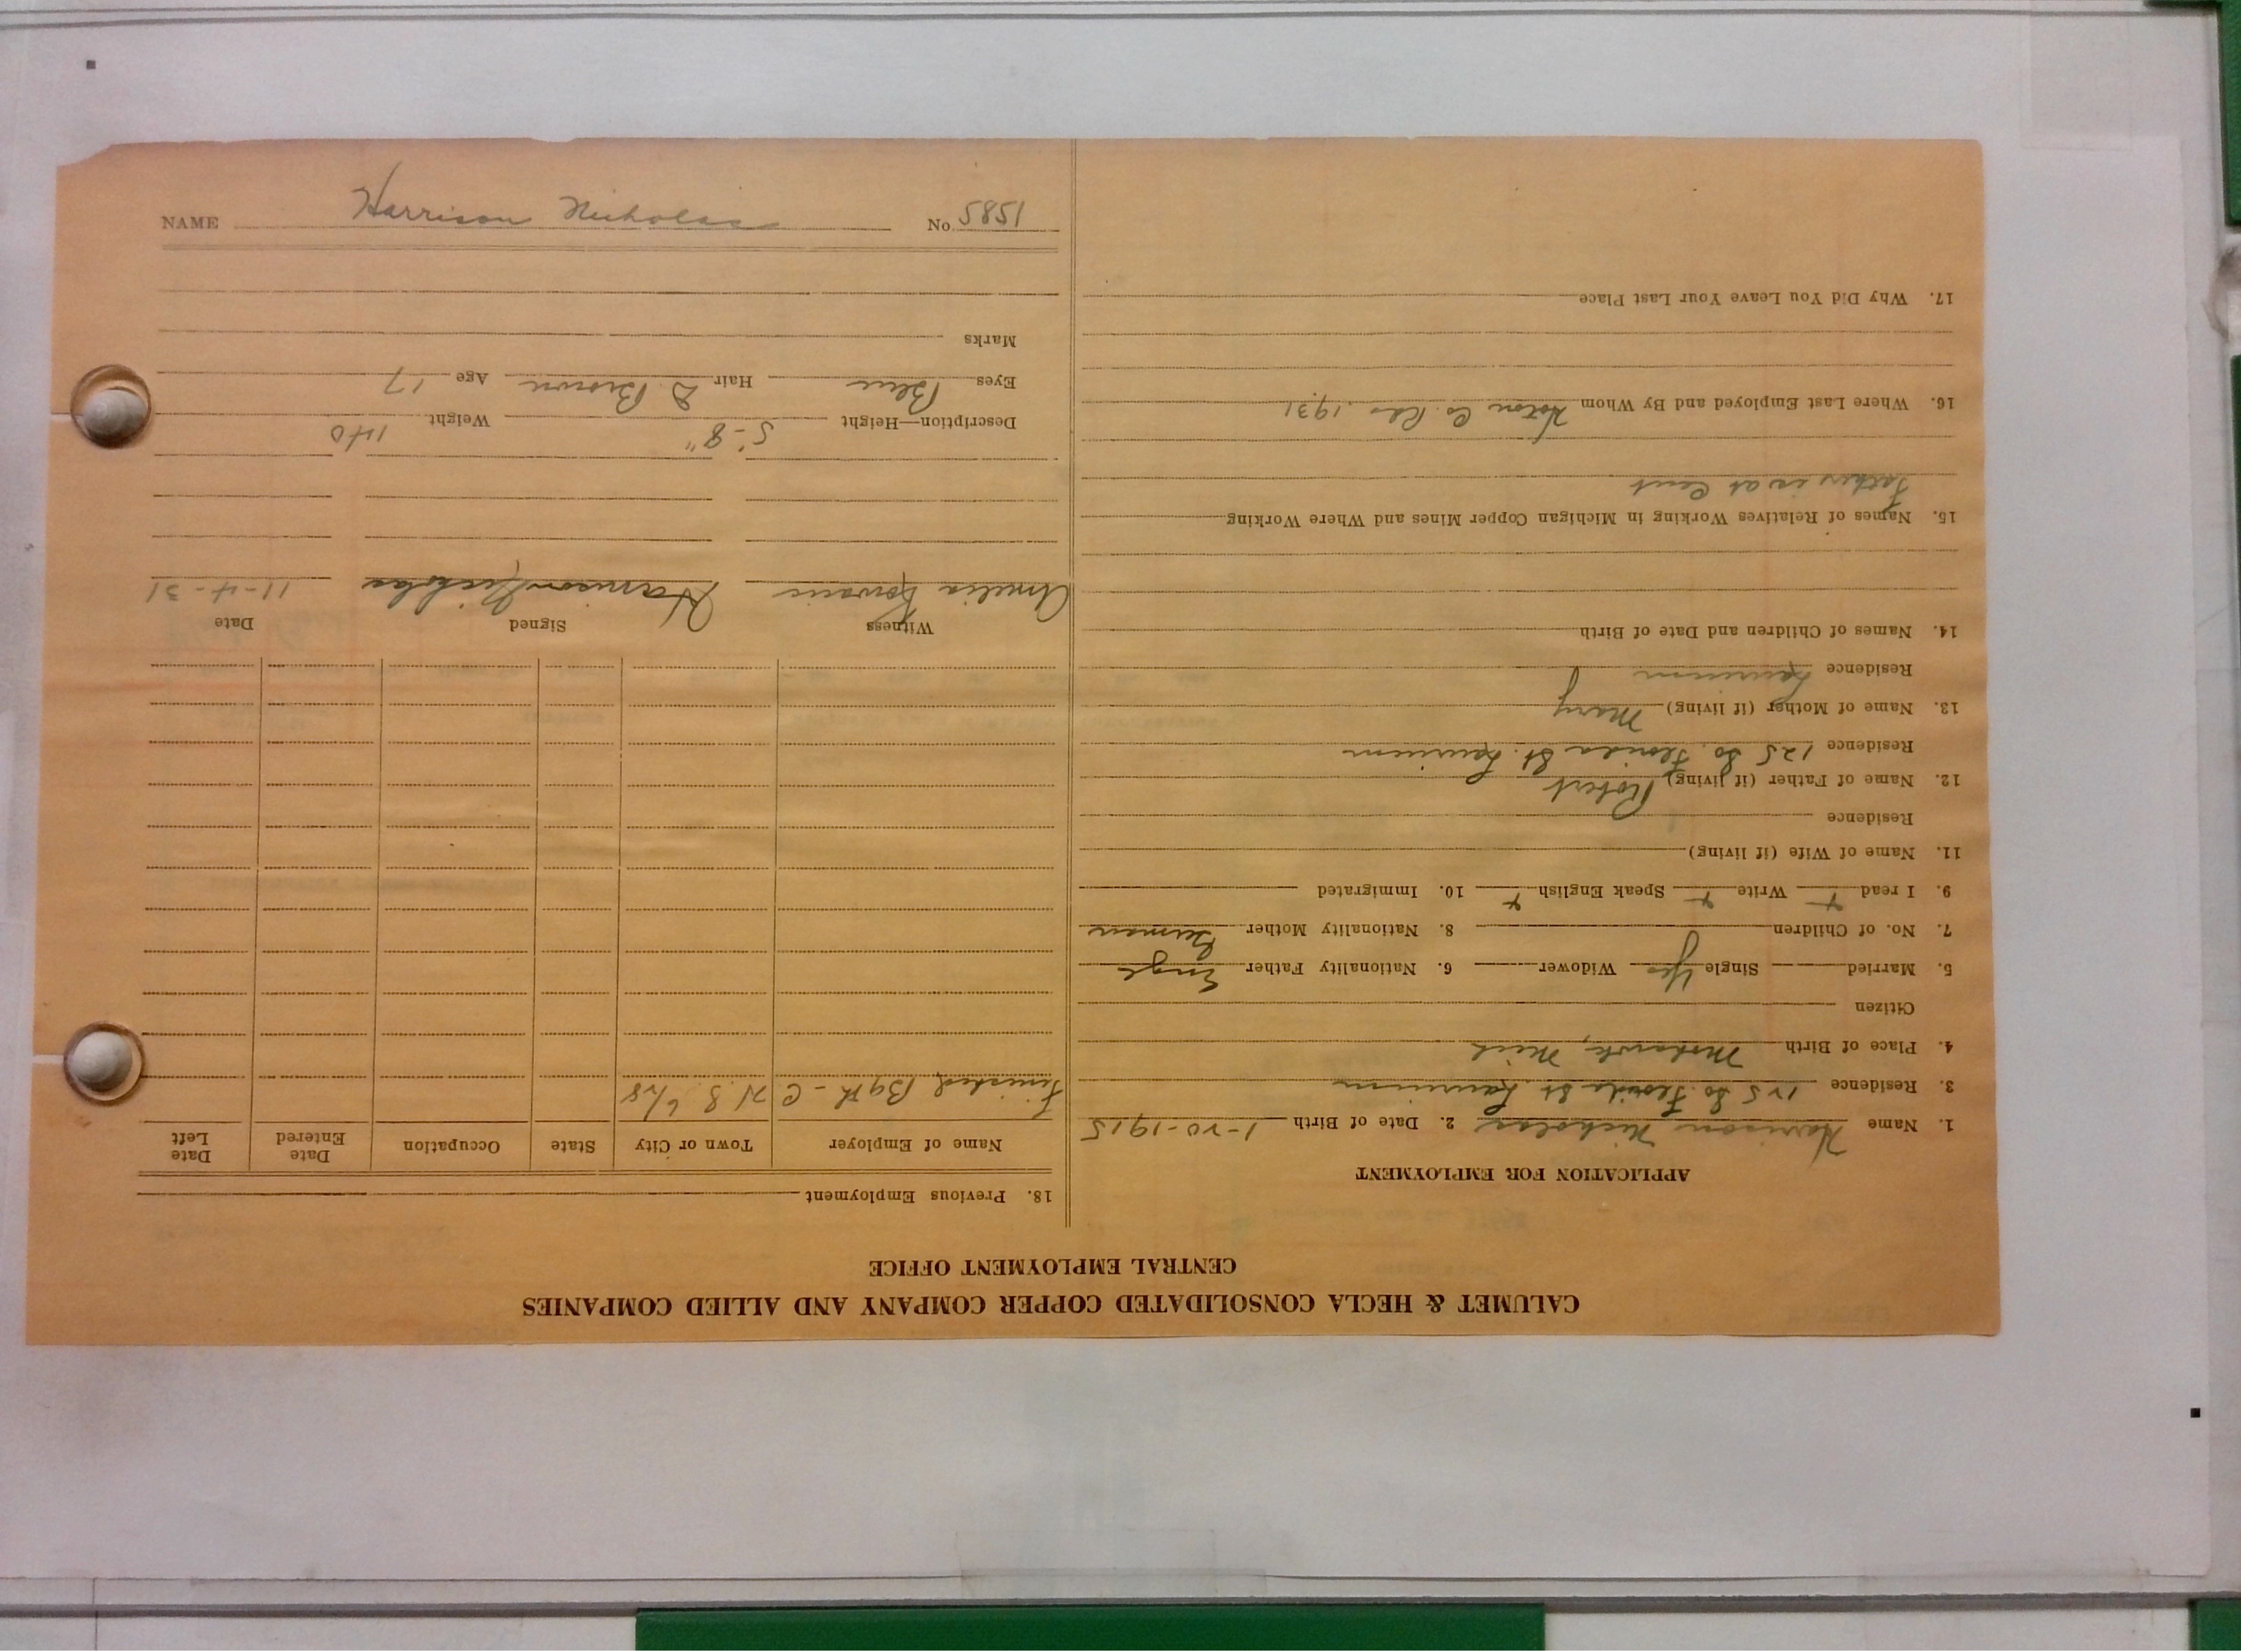 CALUMET & HECLA CONSOLIDATED COPPER COMPANY AND ALLIED COMPANIES
CENTRAL EMPLOYMENT OFFICE
APPLICATION FOR EMPLOYMENT
1. Name Harrison Nicholas 2. Date of Birth 1-20-1915
3. Residence 125 So. Florida St. Laurium
4. Place of Birth Mohawk, Mich
Citizen
5. Married Single Yes Widower 6. Nationality Father Engl
7. No. of Children 8. Nationality Mother German
9. I read + Write + Speak English + 10. Immigrated
11. Name of Wife (if living)
Residence
12. Name of Father (if living) Robert
Residence 125 So. Florida St. Laurium
13. Name of Mother (if living) Mary
Residence Laurium
14. Names of Children and Date of Birth
15. Names of Relatives Working in Michigan Copper Mines and Where Working
Father is at
16. Where Last Employed and By Whom Co. 1931
17. Why Did You Leave Your Last Place
18. Previous Employment
Name of Employer Town or City State Occupation Date Entered Date Left
Finished B 9th - C H S 6/28
Witness Signed Date
Amelia Harrison Nicholas 11-4-31
Description—Height 5'-8" Weight 140
Eyes Blue Hair D Brown Age 17
Marks
NAME Harrison Nicholas No. 5851